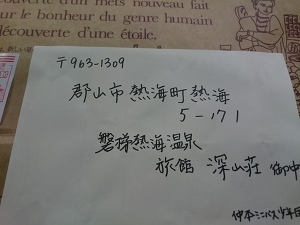 met nouveau fait
sur le bonheur du genre humain
découverte d'une étoile.
〒963-1309
郡山市熱海町熱海
5-171
磐梯熱海温泉
旅館 深山荘 御中
仲本ミニバス少年団